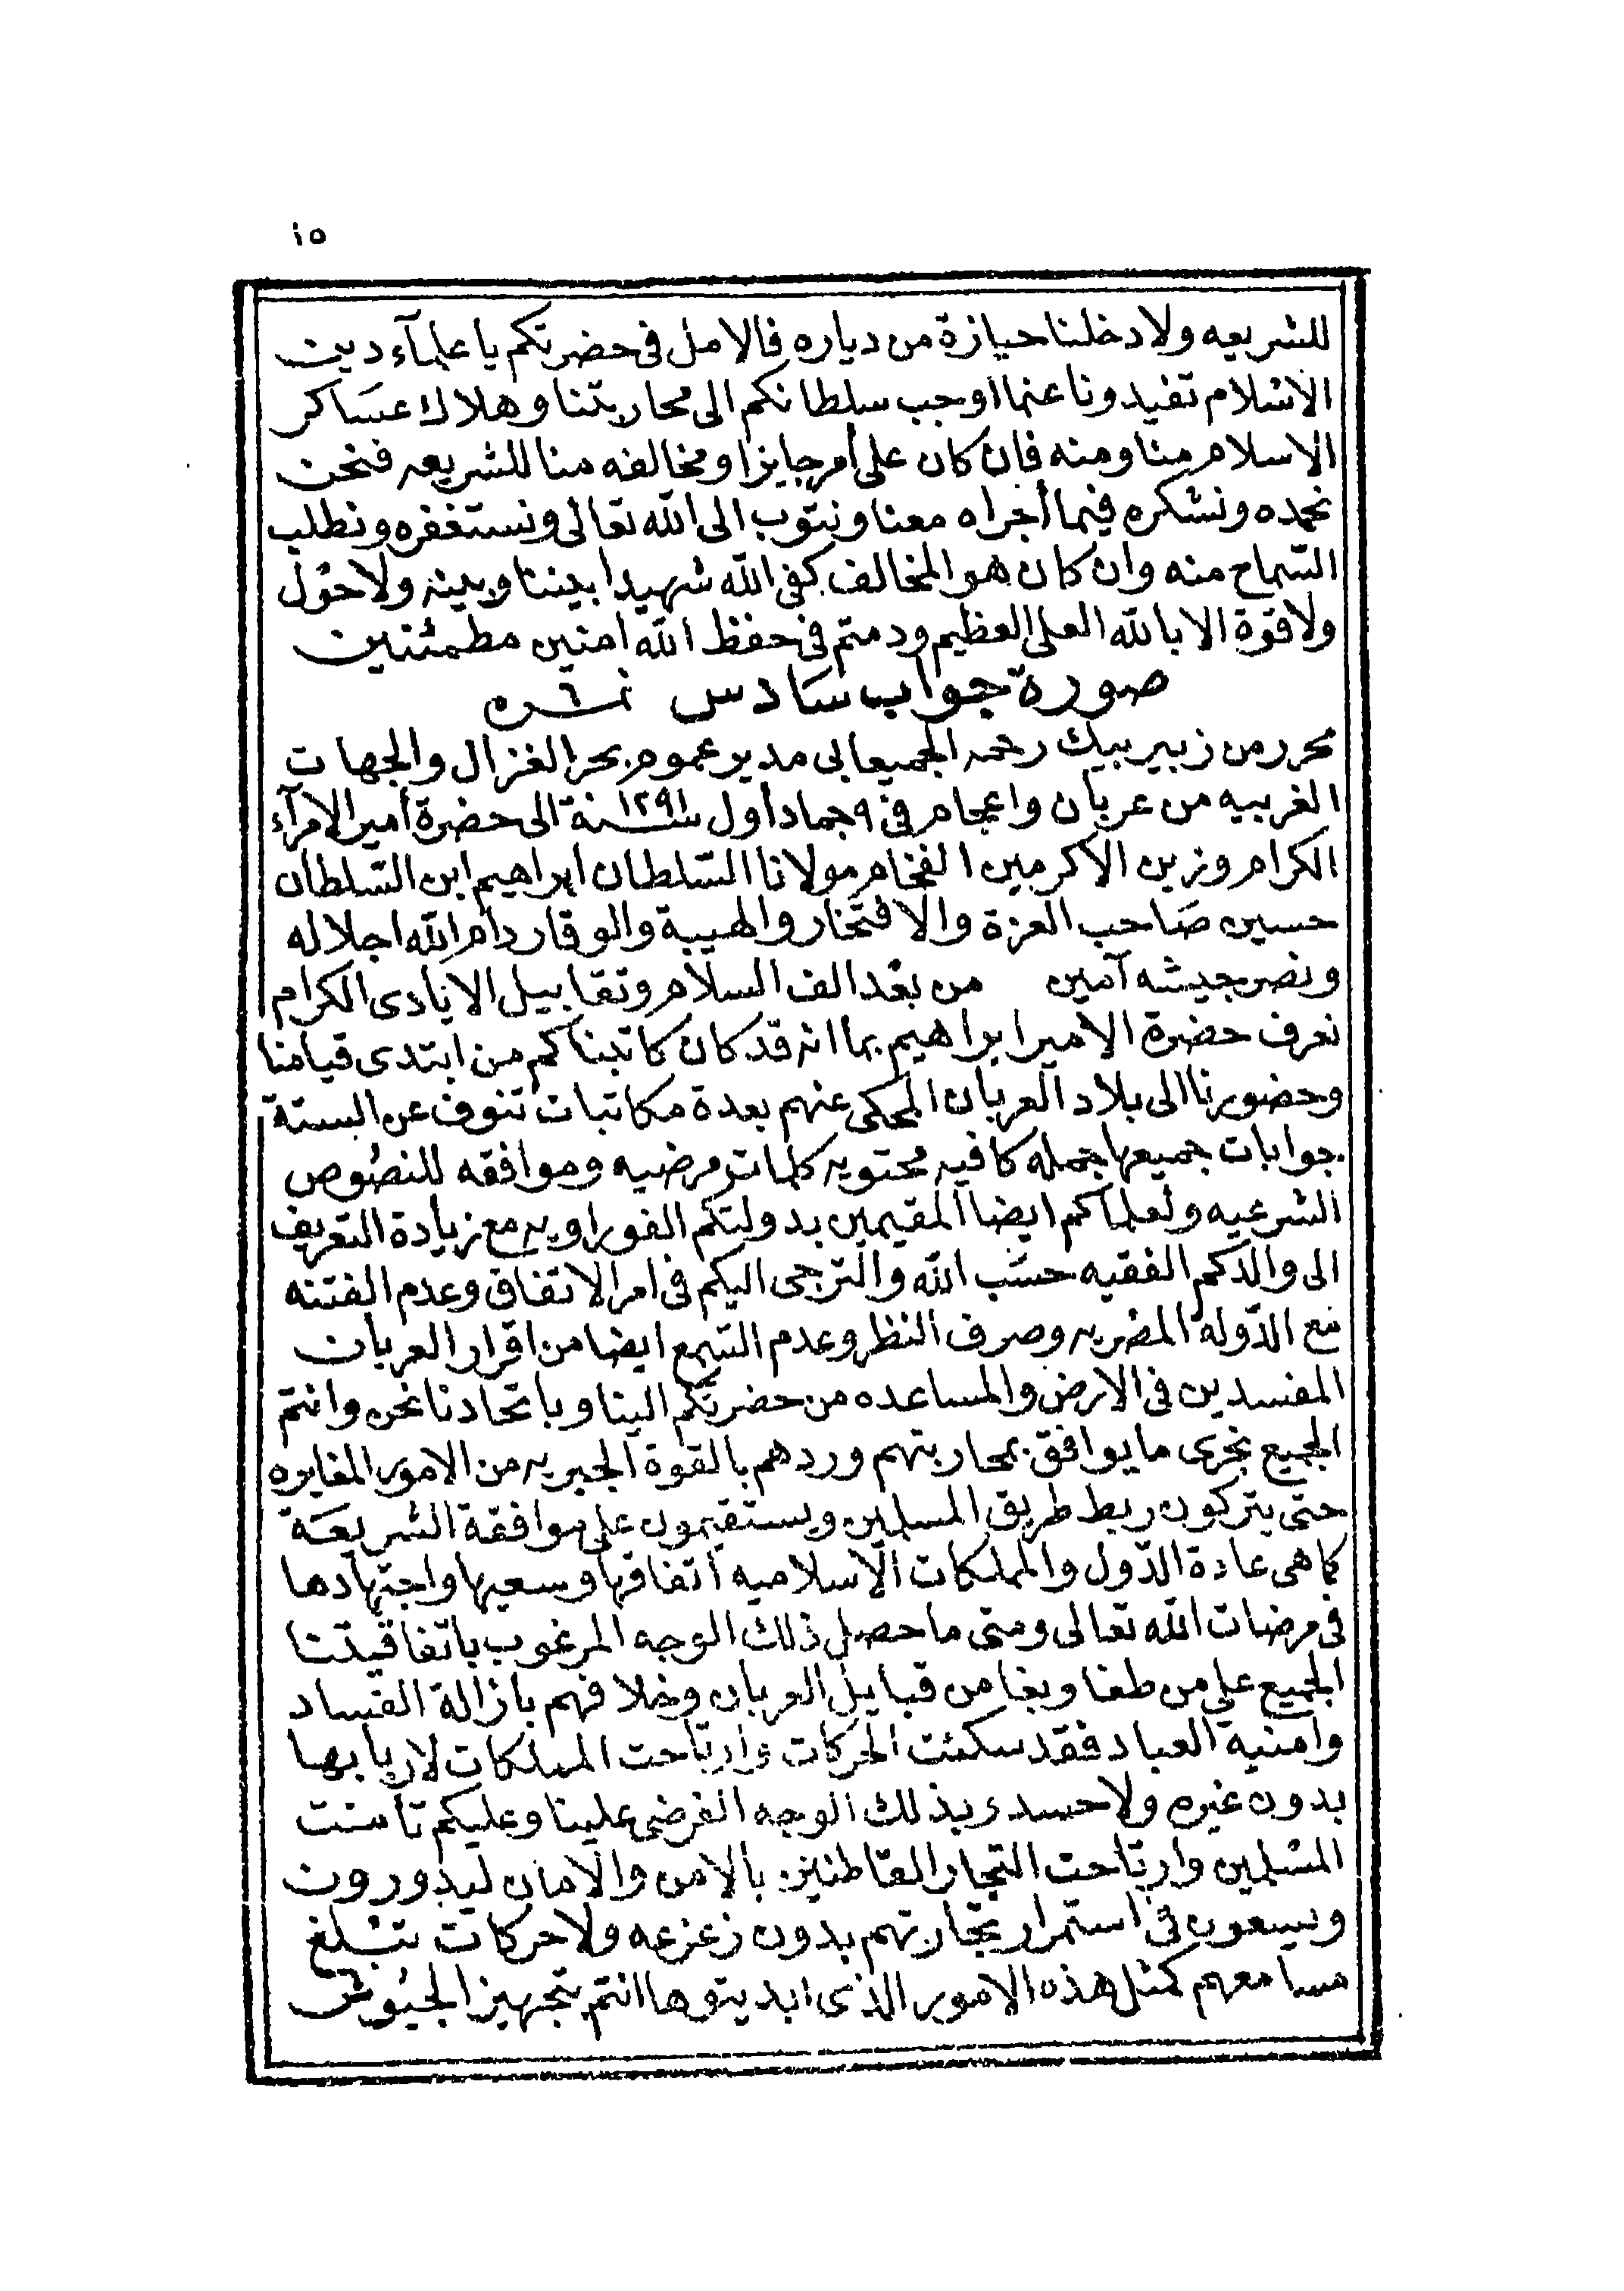 ١٥
للشريعه ولا دخلنا حيازة من دياره فالامل فى حضرتكم يا علمآء دين
الاسلام تفيدونا عنما اوجب سلطانكم الى محاربتنا وهلاك عساكر
الاسلام منا ومنه فان كان على أمر جايز او مخالفه منا للشريعه فنحن
نحمده ونشكره فيما أجراه معنا ونتوب الى الله تعالى ونستغفره ونطلب
السّماح منه وان كان هو المخالف كفى الله شهيدا بيننا وبينه ولا حول
ولا قوة الا بالله العلى العظيم ودمتم فى حفظ الله امنين مطمئنين
صورة جواب سادس نمره ٦
محرر من زبير بيك رحمه الجميعابى مدير عموم بحر الغزال والجهات
الغربيه من عربان واعجام فى ٩ جماد أول سنة ١٢٩١ الى حضرة أمير الامرآء
الكرام وزين الاكرمين الفخام مولانا السّلطان ابراهيم ابن السّلطان
حسين صاحب العزة والافتخار والهيبة والوقار دام الله اجلاله
ونصر جيشه آمين من بعد الف السلام وتقابيل الايادى الكرام
نعرف حضرة الامير ابراهيم بما انه قد كان كاتبناكم من ابتدى قيامنا
وحضورنا الى بلاد العربان المحكى عنهم بعدة مكاتبات تنوف عن الستة
جوابات جميعها جمله كافيه محتويه كلمات مرضيه وموافقه للنصوص
الشرعيه ولعلماكم ايضا المقيمين بدولتكم الفوراويه مع زيادة التعريف
الى والدكم الفقيه حسب الله والترجى اليكم فى امر الاتفاق وعدم الفتنه
مع الدّولة المصريه وصرف النظر وعدم السّمع ايضا من اقرار العربان
المفسدين فى الارض والمساعده من حضرتكم الينا وباتحادنا نحن وانتم
الجميع نجرى ما يوافق بمحاربتهم وردهم بالقوة الجبريه من الامور المغايره
حتى يتركون ربط طريق المسلمين ويستقيمون على موافقة الشريعة
كما هى عادة الدّول والمملكات الاسلاميه اتفاقها وسعيها واجتهادها
فى مرضات الله تعالى ومتى ما حصل ذلك الوجه المرغوب باتفاقيتنا
الجميع على من طغا وبغا من قبايل العربان وخلافهم بازالة الفساد
وامنية العباد فقد سكنت الحركات وارتاحت المملكات لاربابها
بدون غيره ولا حسد وبذلك الوجه الفرضى علينا وعليكم تأمنت
المسلمين وارتاحت التجار القاطنين بالامن والامان ليدورون
ويسعون فى استمرار تجارتهم بدون زعزعه ولا حركات تبلغ
مسامعهم كمثل هذه الامور الذى ابديتوها انتم بتجهيز الجيوش